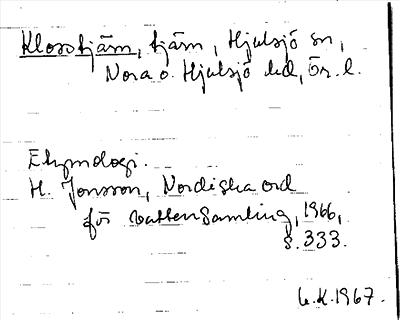 Klosstjärn, tjärn, Hjulsjö sn,
Nora o. Hjulsjö bd, Ör. l.
Etymologi.
H. Jonsson, Nordiska ord
för vattensamling, 1966,
s. 333.
G.K. 1967.